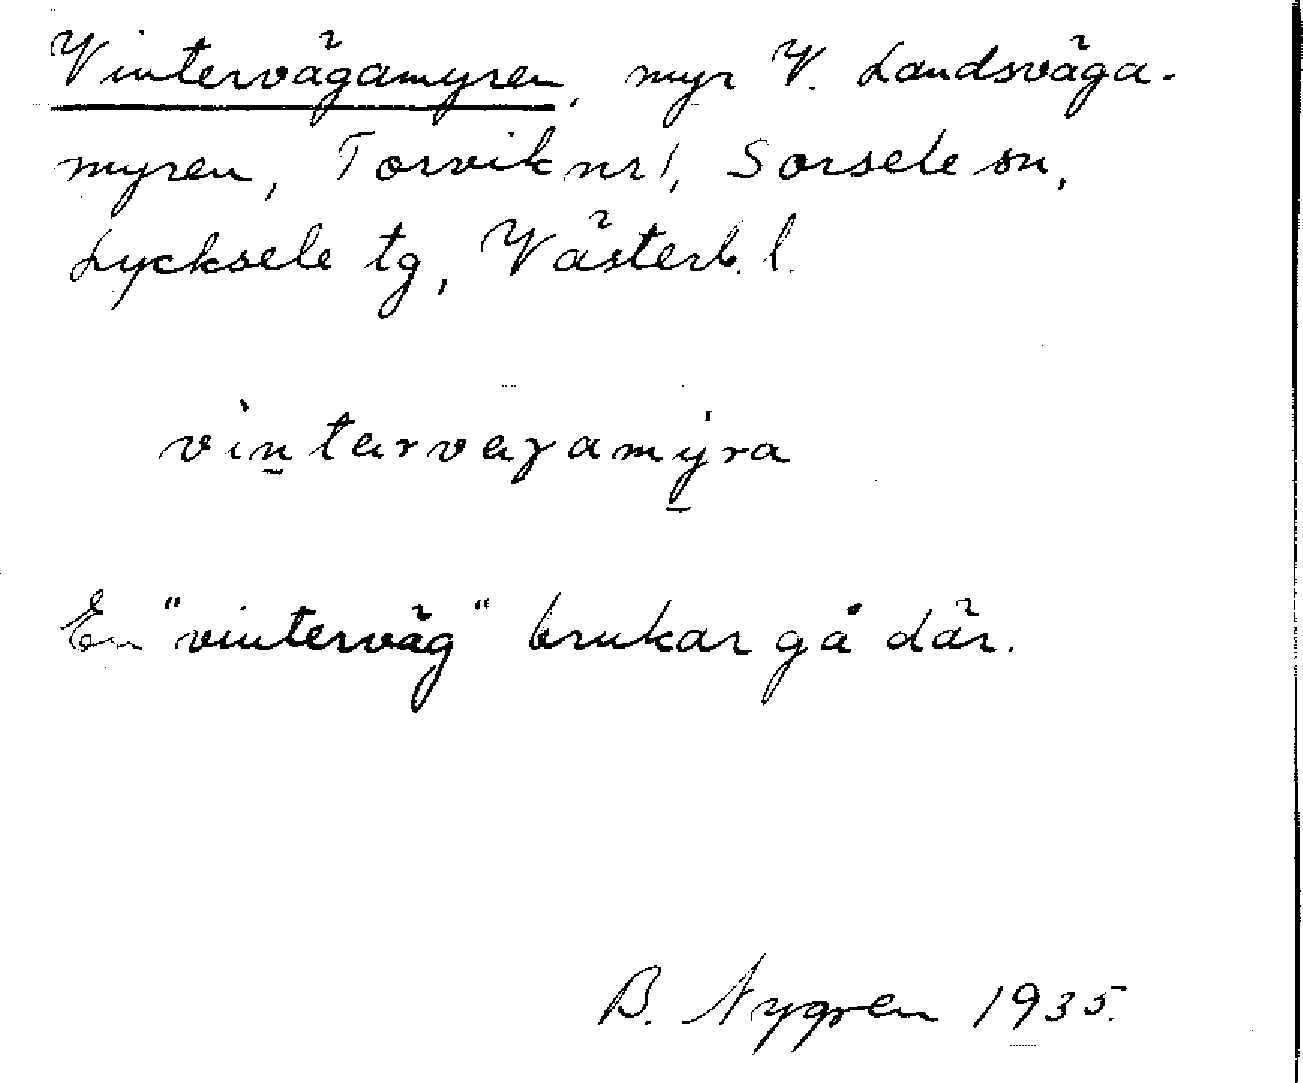 Vintervägamyren, myr V. Landsväga-
myren, Torvik nr 1, Sorsele sn,
Lycksele tg, Västerb. l.
vìn̲tərveɣamy̲̍ra
En "vinterväg" brukar gå där.
B. Nygren 1935.